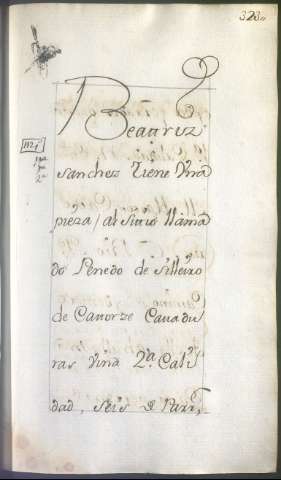 323..
Beatriz
1124
sanchez tiene Vina
pieza, al sitio llama
do Penedo de silleiro
de Catorze Cavadu
ras vina 2.a Cali
dad, seis de Parr,